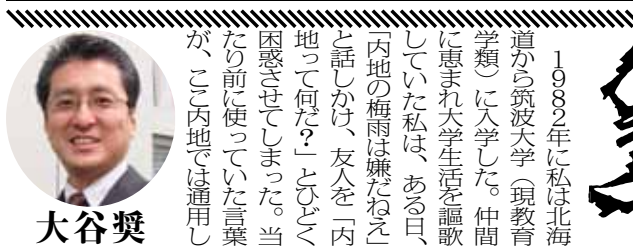 1982年に私は北海
道から筑波大学（現教育
学類）に入学した。仲間
に恵まれ大学生活を謳歌
していた私は、ある日、
「内地の梅雨は嫌だねえ」
と話しかけ、友人を「内
地って何だ？」とひどく
困惑させてしまった。当
たり前に使っていた言葉
が、ここ内地では通用し
大谷奨